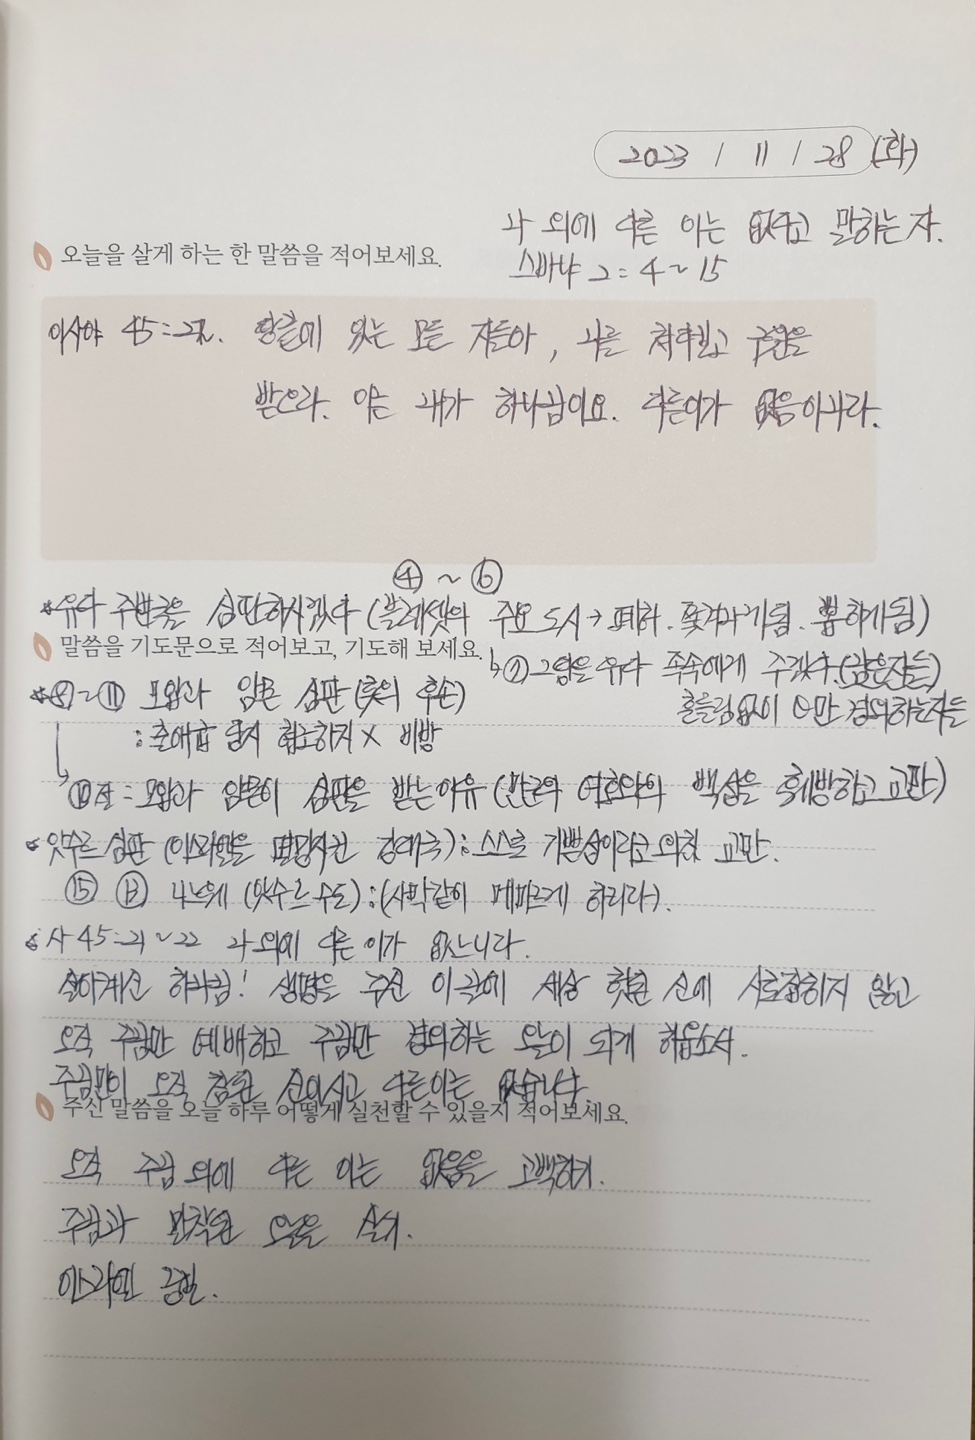 2023 / 11 / 28 (화)
나 외에 다른 이는 없다고 말하는 자.
오늘을 살게 하는 한 말씀을 적어보세요.
스바냐 2:4~15
이사야 45:22. 땅끝에 있는 모든 자들아, 나를 쳐다보고 구원을
받으라. 나는 내가 하나님이요. 다른이가 없음이니라.
④ ~ ⑥
*유다 주변국을 심판하시겠다 (블레셋의 주요 도시→폐허. 쫓겨나게됨. 뽑히게됨)
말씀을 기도문으로 적어보고, 기도해 보세요.
↳⑦그땅을 유다 족속에게 주겠다.(남은자들)
흔들림없이 만 경외하는자들
*⑧~⑪ 모압과 암몬 심판 (롯의 후손)
: 출애굽 당시 협조하지 X 비방
↳⑩절: 모압과 암몬이 심판을 받는이유 (만군의 여호와의 백성을 훼방하고 교만)
*앗수르 심판 (이스라엘을 멸망시킨 강대국): 스스로 기쁜성이라고 외침 교만.
⑮ ⑬ 니느웨 (앗수르 수도): (사막같이 메마르게 하리라).
*사 45:21~22 나 외에 다른 이가 없느니라.
살아계신 하나님! 생명을 주신 이 세상 헛된 신에 사로잡히지 않고
오직 주님만 예배하고 주님만 경외하는 오늘이 되게 하옵소서.
주님만이 오직 참된 신이시고 다른이는 없습니다
주신 말씀을 오늘 하루 어떻게 실천할 수 있을지 적어보세요.
오직 주님 외에 다른 이는 없음을 고백하기.
주님과 밀착된 오늘을 살기.